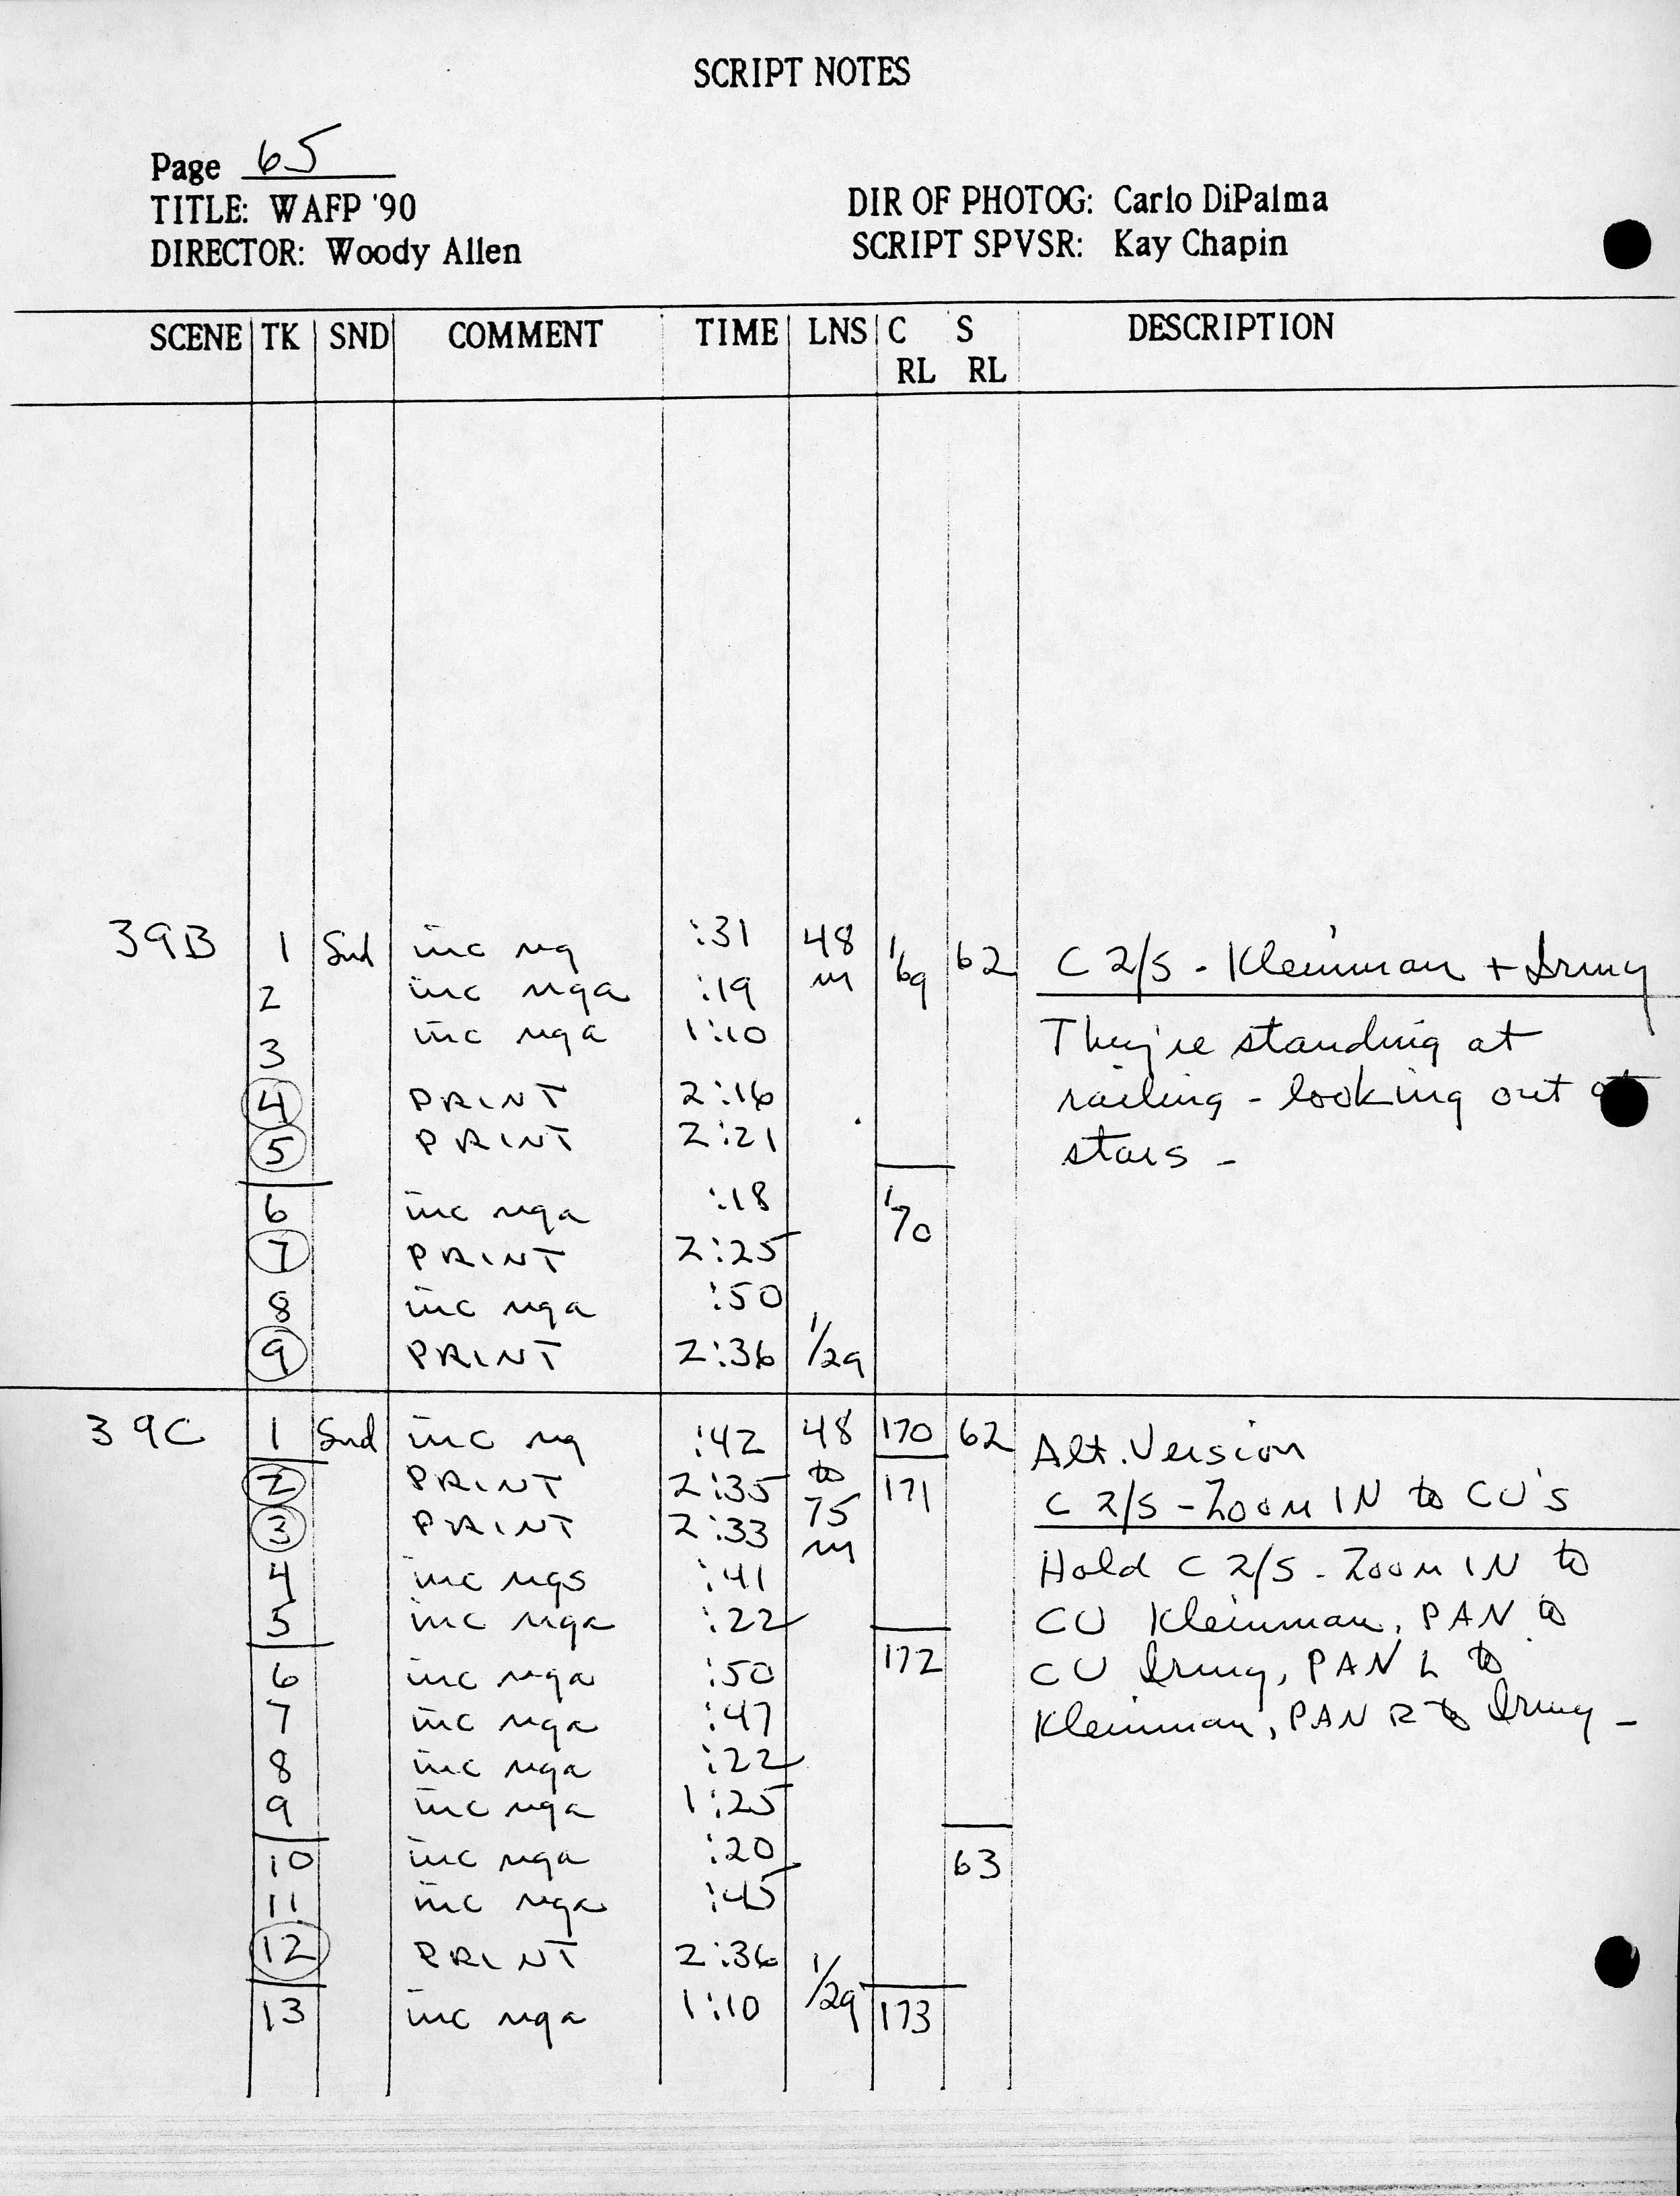 SCRIPT NOTES
Page 65
TITLE: WAFP '90
DIRECTOR: Woody Allen
DIR OF PHOTOG: Carlo DiPalma
SCRIPT SPVSR: Kay Chapin
SCENE TK SND COMMENT TIME LNS C RL S RL DESCRIPTION
39B 1 Snd inc ng :31 48 m 169 62 C 2/S - Kleinman + Irmy
2 inc nga :19
3 inc nga 1:10 They're standing at
4 PRINT 2:16 railing - looking out at
5 PRINT 2:21 stars -
6 inc nga :18 170
7 PRINT 2:25
8 inc nga :50
9 PRINT 2:36 1/29
39C 1 Snd inc ng :42 48 170 62 Alt. Version
2 PRINT 2:35 to 171 C 2/S - ZOOM IN to CU's
3 PRINT 2:33 75 m
4 inc ngs :41 Hold C 2/S - ZOOM IN to
5 inc nga :22 CU Kleinman, PAN to
6 inc nga :50 172 CU Irmy, PAN L to
7 inc nga :47 Kleinman, PAN R to Irmy -
8 inc nga :22
9 inc nga 1:25
10 inc nga :20 63
11 inc nga :45
12 PRINT 2:36
13 inc nga 1:10 1/29 173